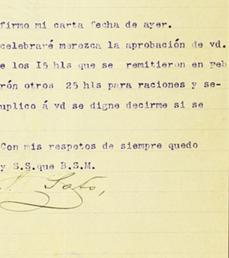 firmo mi carta fecha de ayer.
celebraré merezca la aprobación de vd.
e los I5 hls que se remitieron en Feb
rón otros 25 hls para raciones y se-
uplico á vd se digne decirme si se
Con mis respetos de siempre quedo
y S.S.que B.S.M.
Soto,